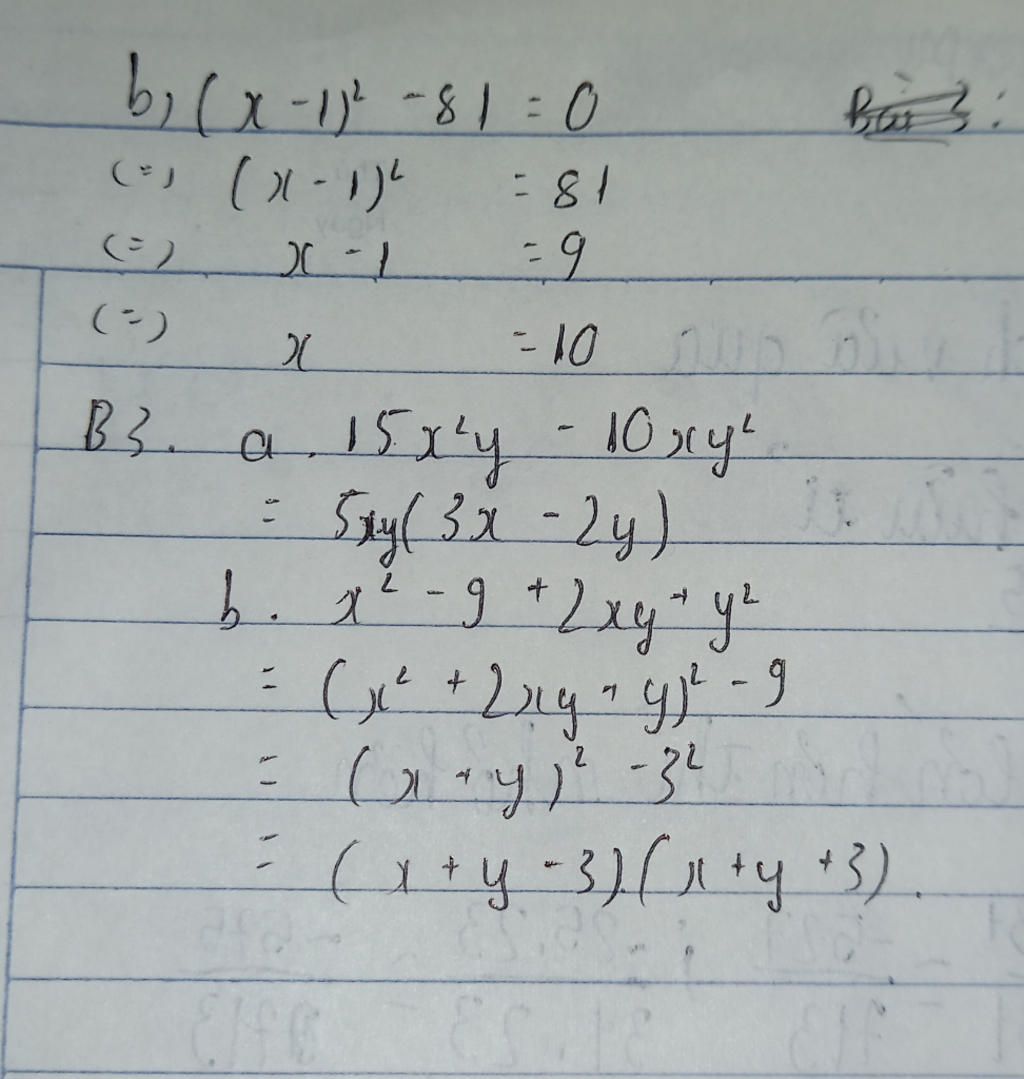 b, (x - 1)² - 81 = 0
Bài 3:
(=) (x - 1)² = 81
(=) x - 1 = 9
(=) x = 10
B3. a. 15x²y - 10xy²
= 5xy(3x - 2y)
b. x² - 9 + 2xy + y²
= (x² + 2xy + y)² - 9
= (x + y)² - 3²
= (x + y - 3).(x + y + 3).